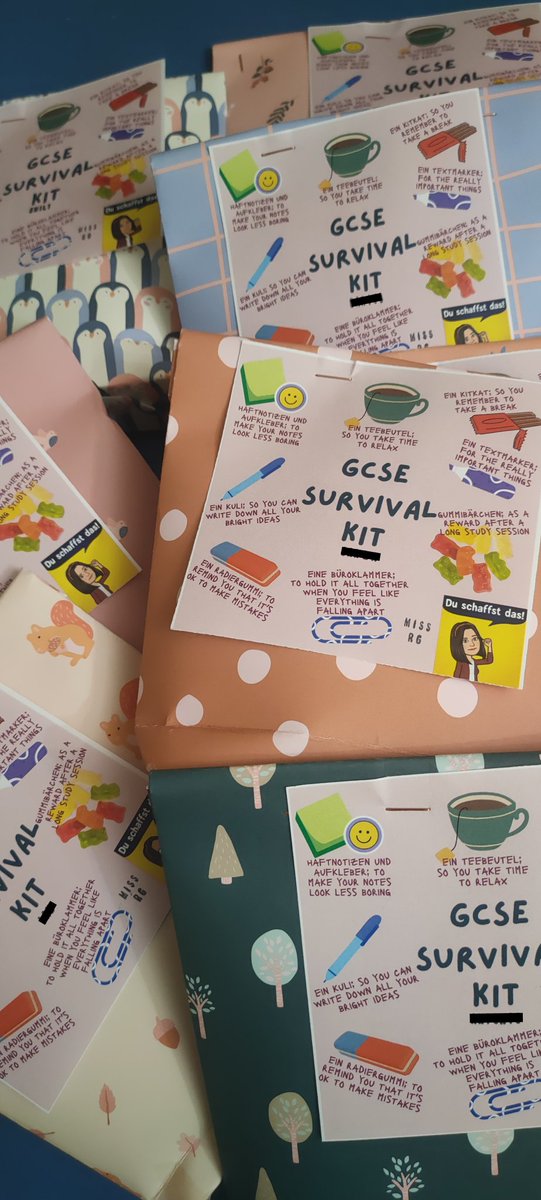 GCSE
SURVIVAL
GCSE
SURVIVAL
KIT
Du schaffst das!
MISS
RG
EIN KITKAT; SO YOU
REMEMBER TO
TAKE A BREAK
HAFTNOTIZEN UND
AUFKLEBER; TO
MAKE YOUR NOTES
LOOK LESS BORING
EIN TEEBEUTEL;
SO YOU TAKE TIME
TO RELAX
EIN TEXTMARKER;
FOR THE REALLY
IMPORTANT THINGS
GCSE
SURVIVAL
KIT
GUMMIBÄRCHEN; AS A
REWARD AFTER A
LONG STUDY SESSION
EIN KULI; SO YOU CAN
WRITE DOWN ALL YOUR
BRIGHT IDEAS
EINE BÜROKLAMMER;
TO HOLD IT ALL TOGETHER
WHEN YOU FEEL LIKE
EVERYTHING IS
FALLING APART
MISS
RG
Du schaffst das!
HAFTNOTIZEN UND
AUFKLEBER; TO
MAKE YOUR NOTES
LOOK LESS BORING
EIN TEEBEUTEL;
SO YOU TAKE TIME
TO RELAX
EIN KITKAT; SO YOU
REMEMBER TO
TAKE A BREAK
EIN TEXTMARKER;
FOR THE REALLY
IMPORTANT THINGS
GCSE
SURVIVAL
KIT
EIN KULI; SO YOU CAN
WRITE DOWN ALL YOUR
BRIGHT IDEAS
GUMMIBÄRCHEN; AS A
REWARD AFTER A
LONG STUDY SESSION
EIN RADIERGUMMI; TO
REMIND YOU THAT IT'S
OK TO MAKE MISTAKES
EINE BÜROKLAMMER;
TO HOLD IT ALL TOGETHER
WHEN YOU FEEL LIKE
EVERYTHING IS
FALLING APART
MISS
RG
Du schaffst das!
GUMMIBÄRCHEN; AS A
REWARD AFTER A
LONG STUDY SESSION
Du schaffst das!
TEXTMARKER;
FOR THE REALLY
IMPORTANT THINGS
GUMMIBÄRCHEN; AS A
REWARD AFTER A
LONG STUDY SESSION
Du schaffst
KIT
MISS
RG
EINE BÜROKLAMMER;
TO HOLD IT ALL TOGETHER
WHEN YOU FEEL LIKE
EVERYTHING IS
FALLING APART
EIN RADIERGUMMI; TO
REMIND YOU THAT IT'S
OK TO MAKE MISTAKES
HAFTNOTIZEN UND
AUFKLEBER; TO
MAKE YOUR NOTES
LOOK LESS BORING
EIN TEEBEUTEL;
SO YOU TAKE TIME
TO RELAX
GCSE
SURVIVA
KIT
EIN KULI; SO YOU CAN
WRITE DOWN ALL YOUR
BRIGHT IDEAS
EIN RADIERGUMMI; TO
REMIND YOU THAT IT'S
OK TO MAKE MISTAKES
EINE BÜROKLAMMER;
TO HOLD IT ALL TOGETHE
WHEN YOU FEEL LIKE
EVERYTHING IS
FALLING APART